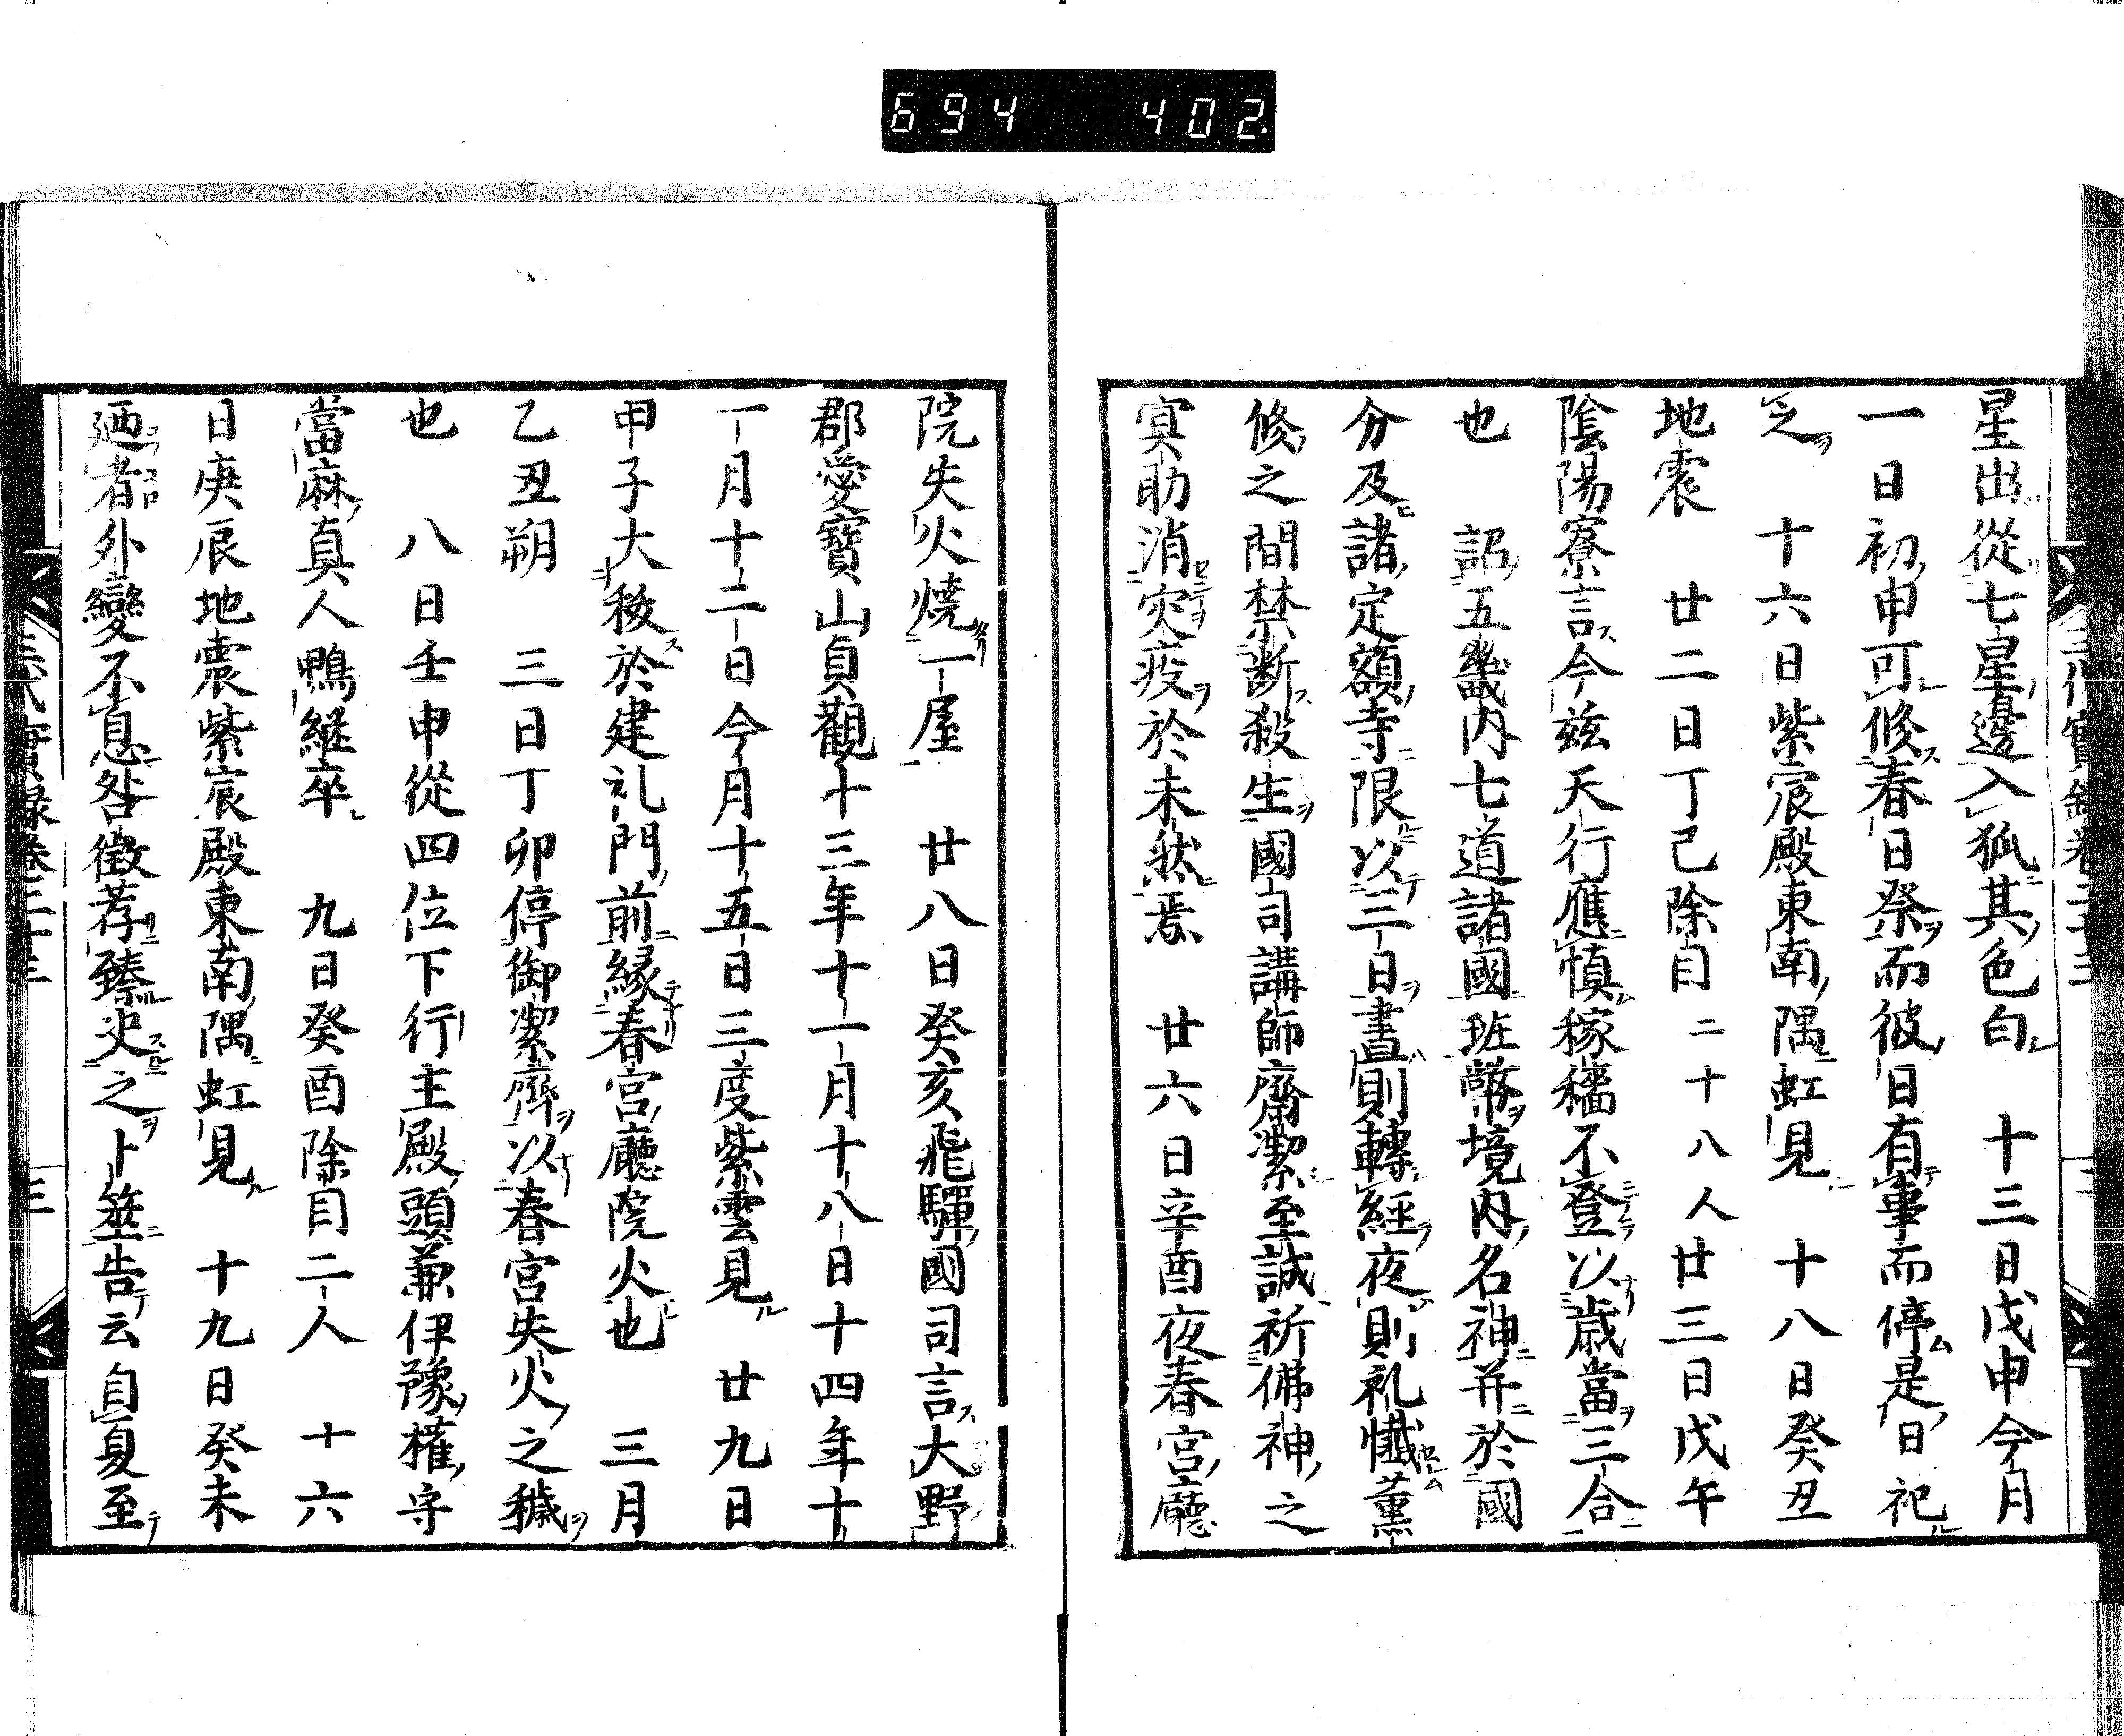 694 402.
星出從七星邊入狐其色白 十三日戊申今月
一日初申可修春日祭而彼日有事而停是日祀
之 十六日紫宸殿東南隅虹見 十八日癸丑
地震 廿二日丁已除目二十八人廿三日戊午
陰陽寮言今茲天行應慎稼穡不登以歳當三合
也 詔五畿内七道諸國班幣境内名神并於國
分及諸定額寺限以三日晝則轉經夜則礼懺薫
修之間禁断殺生國司講師齋潔至誠祈佛神之
冥助消灾疫於未然焉 廿六日辛酉夜春宮廳
院失火焼一屋 廿八日癸亥飛驒國司言大野
郡愛寶山貞觀十三年十一月十八日十四年十
一月十二日今月十五日三度紫雲見 廿九日
甲子大祓於建礼門前縁春宮廳院火也 三月
乙丑朔 三日丁卯停御潔齊以春宮失火之穢
也 八日壬申從四位下行主殿頭兼伊豫權守
當麻真人鴨継卒 九日癸酉除目二人 十六
日庚辰地震紫宸殿東南隅虹見 十九日癸未
廼者外變不息咎徴荐臻决之卜筮告云自夏至
三代實録卷二十三 三